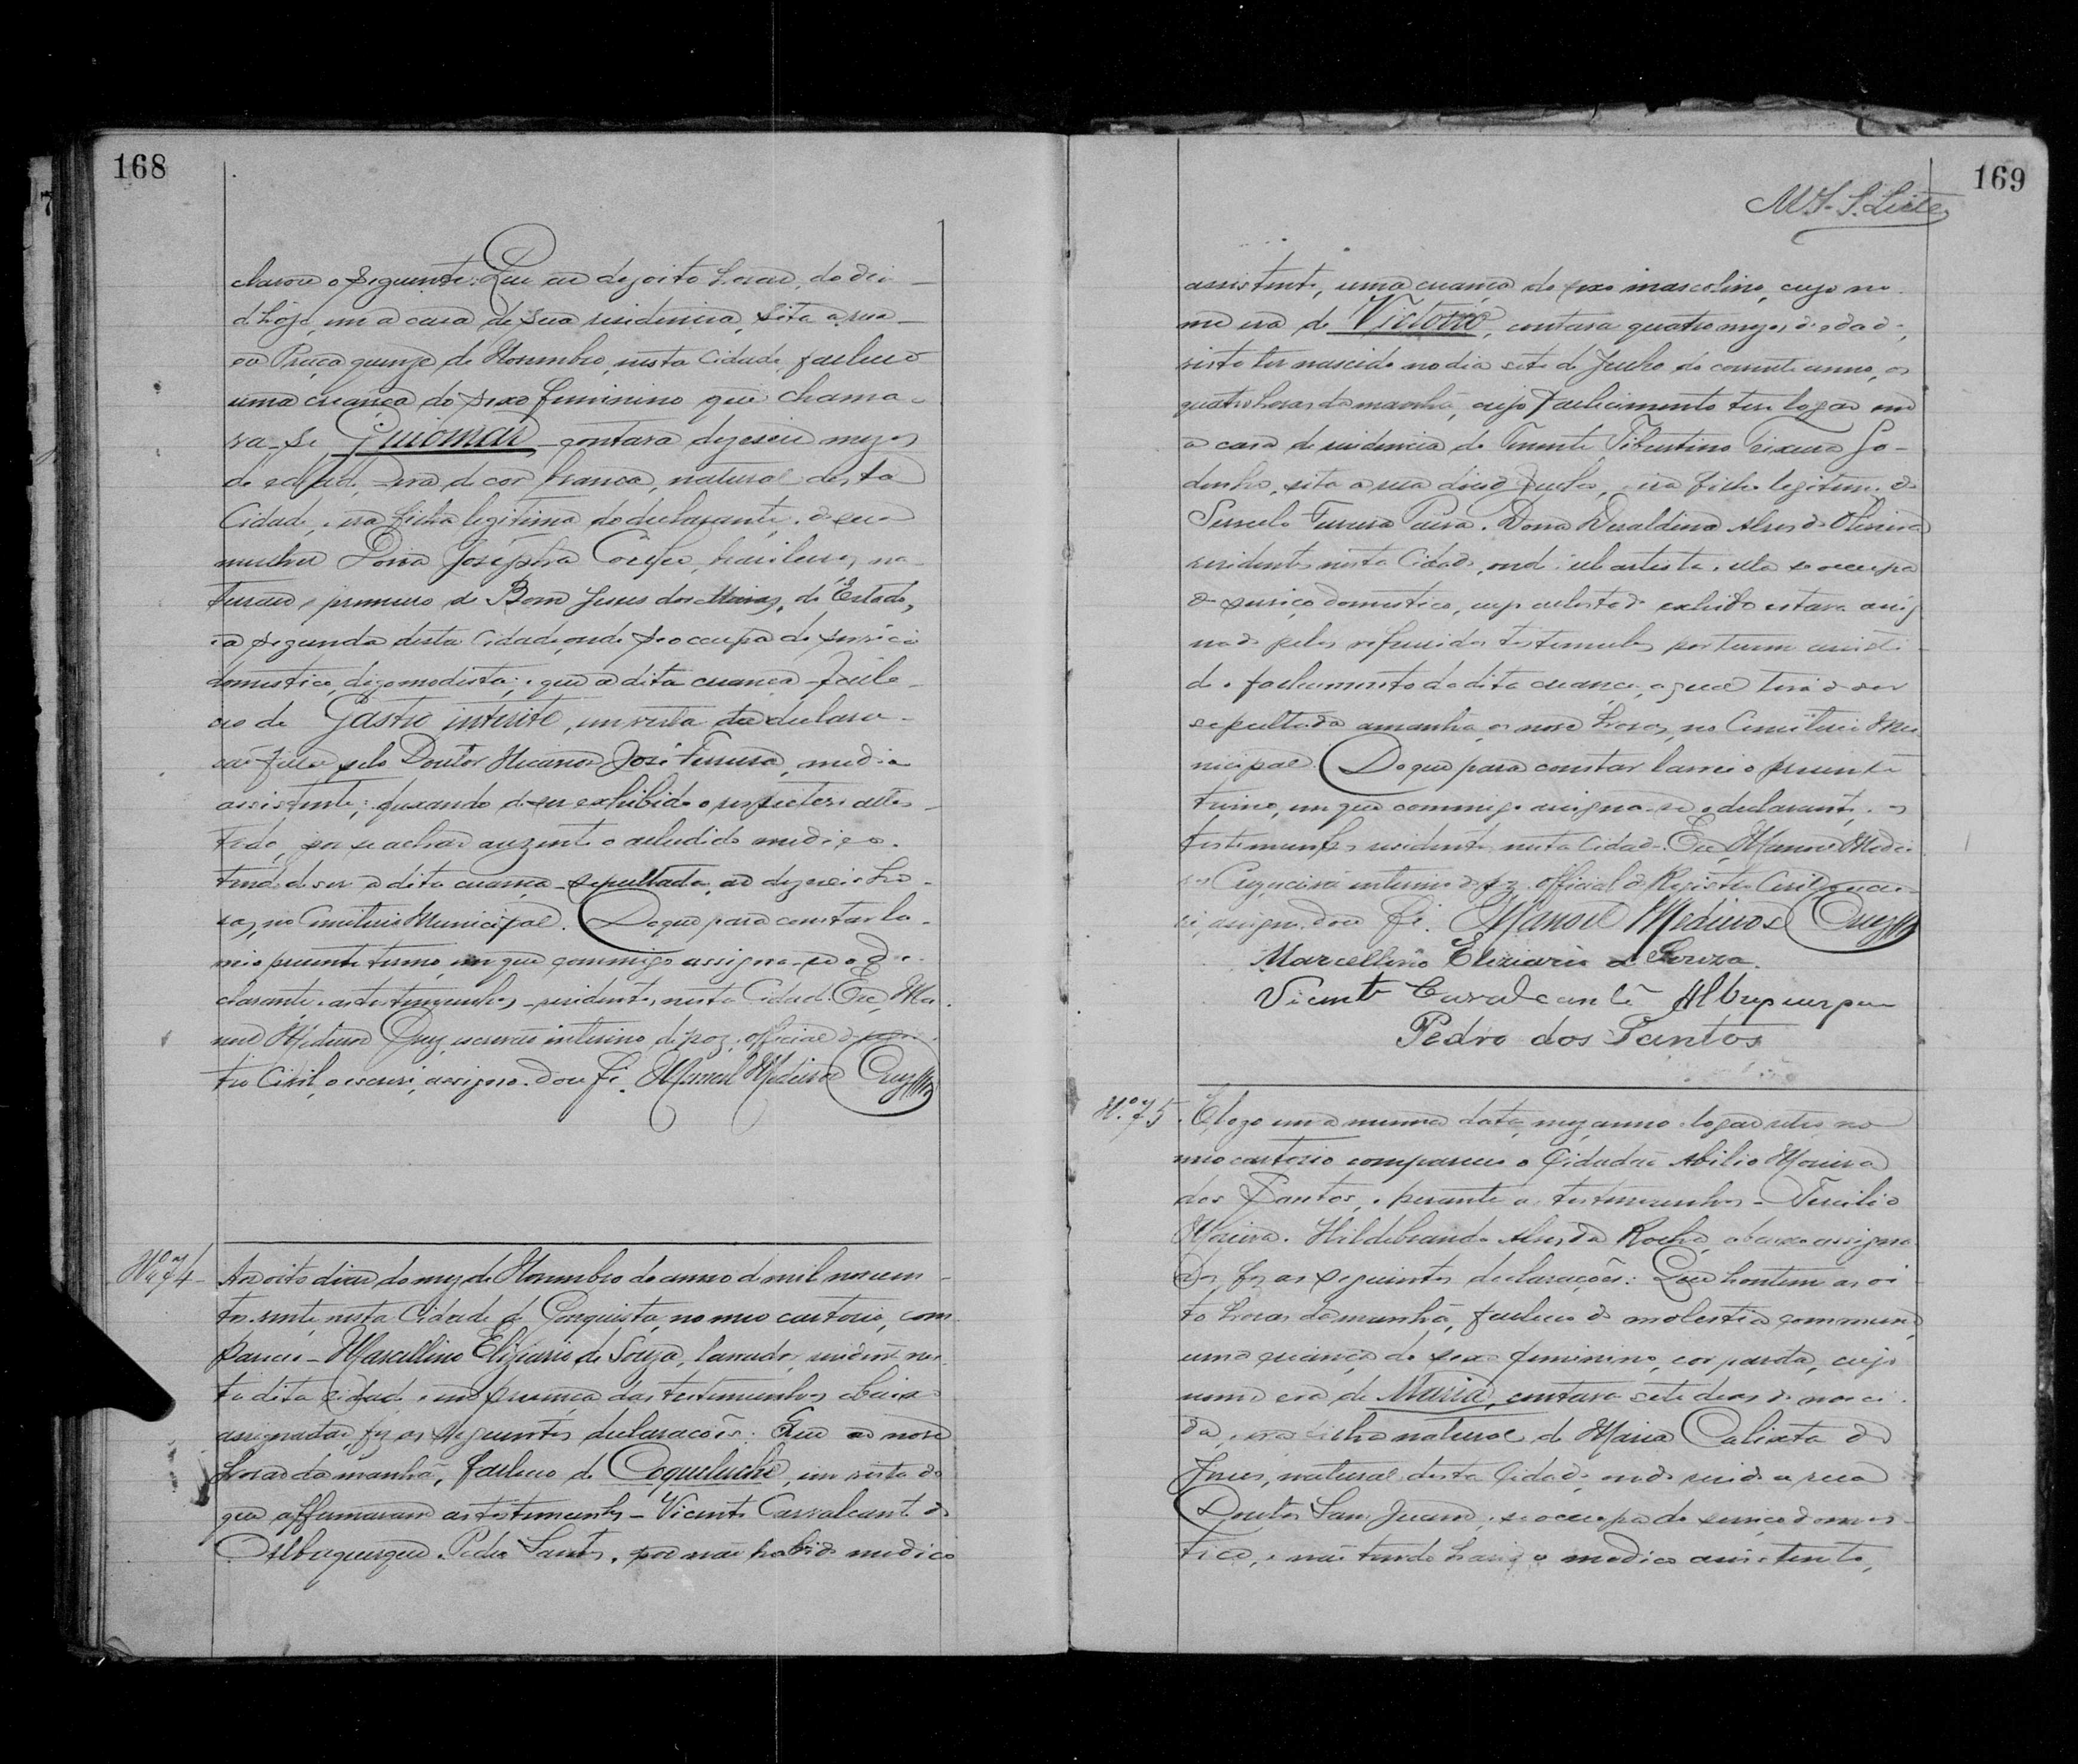 168
clarou o seguinte: Que as dezoito horas, do dia
d'hoje, em a casa de sua residencia, sita a rua
ou Praça quinze de Novembro, nesta Cidade, falleceu
uma creança do sexo feminino que chama-
va-se Guiomar, contava dezeseis mezes
de edade, era de cor branca, natural desta
Cidade, era filha legitima do declarante, e de sua
mulher Dona Josepha Coelho, brasileiros, na-
turaes, o primeiro de Bom Jesus dos Meiras, do Estado,
e a segunda desta Cidade, onde se occupa de serviço
domestico, digo modista; e que a dita creança falle-
ceu de Gastro interite, em vista da declara-
ção feita pelo Doutor Nicanor José Ferreira, medico
assistente; deixando de ser exhibido o respectivo attes-
tado, por se achar auzente o alludido medico.
tendo de ser a dita creança sepultada, as dezeseis ho-
ras, no Cimiterio Municipal. Do que para constar la-
vrei o presente termo, em que commigo assigna-se o de-
clarante e as testemunhas residentes nesta Cidade. Eu, Ma-
noel Medeiros Cruz, escrivão interino de paz, official do
tro Civil, o escrevi, assigno. Dou fé. Manoel Medeiros Cruz
Nº 74 Aos oito dias do mez de Novembro do anno de mil novecen-
tos e vinte, nesta Cidade de Conquista, no meu cartorio, com
pareceu Marcellino Eliziario de Souza, lavrador, residente nes-
ta dita Cidade e em presença das testemunhas abaixo
assignadas, fez as seguintes declarações: Que as nove
horas da manhã, falleceu de Coqueluche, em vista do
que affirmaram as testemunhas Vicente Cavalcante de
Albuquerque e Pedro Santos, por não haver medico
169
M. S. S. Leite
assistente, uma creança do sexo masculino, cujo no-
me era de Victorio, contava quatro mezes de edade,
visto ter nascido no dia sete de Julho do corrente anno, as
quatro horas da manhã, cujo fallecimento teve logar em
a casa de residencia do Tenente Tiburtino Teixeira Go-
dinho, sita a rua era filho legitimo de
Ferreira Paiva e Dona Deraldina Alves de Oliveira
residentes nesta Cidade, onde elle artista e ella se occupa
de serviço domestico, cujo attestado exhibido estava assig
nado pelas referidas testemunhas por terem assisti-
do o fallecimento da dita creança, a qual terá de ser
sepultada amanhã, as nove horas, no Cimiterio Mu-
nicipal. Do que para constar lavrei o presente
termo, em que commigo assigna-se o declarante e as
testemunhas residentes nesta Cidade. Eu, Manoel Medei-
ros Cruz, escrivão interino de paz, official do Registro Civil, o escre-
vi, assigno. Dou fé. Manoel Medeiros Cruz
Marcellino Eliziario de Souza.
Vicente Cavalcante Albuquerque
Pedro dos Santos
Nº 75. E logo em a mesma data, mez, anno e logar retro, no
meu cartorio compareceu o Cidadão Abilio Moreira
dos Santos, e perante as testemunhas
Moreira e Hildebrando Alves da Rocha, abaixo assigna-
dos, fez as seguintes declarações: Que hontem as oi-
to horas da manhã, falleceu de molestia commum,
uma creança do sexo feminino, cor parda, cujo
nome era de Maria, contava sete dias de nasci-
da, era filha natural de Maria Calixta de
Jesus, natural desta Cidade, onde reside a rua
Doutor e se occupa de serviço domes-
tico, e não tendo havido medico assistente,